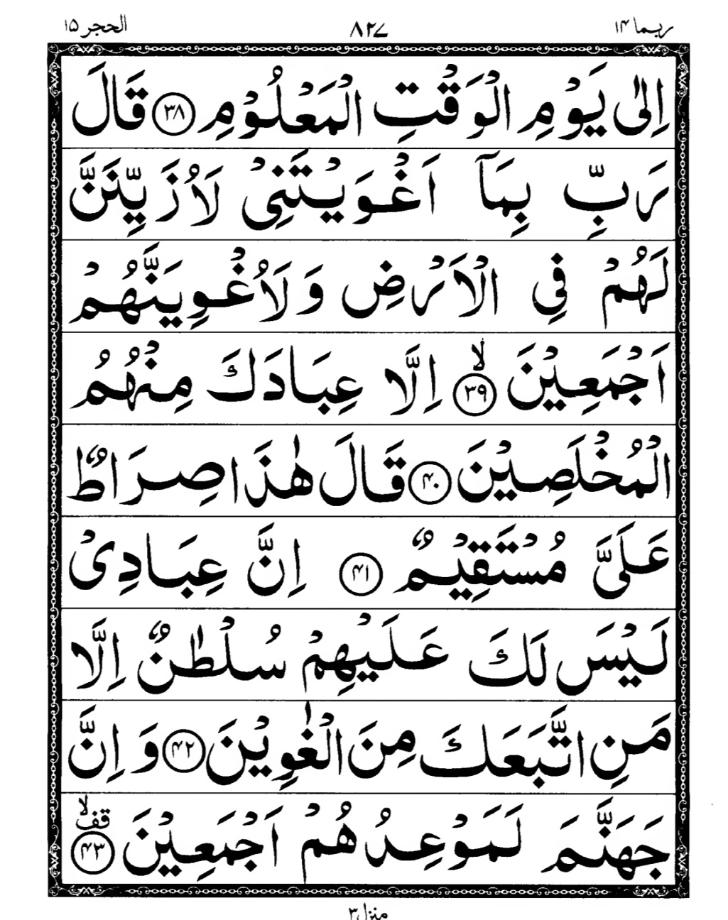 ربما ١٤ ٨٢٧ الحجر ١٥
اِلٰى يَوْمِ الْوَقْتِ الْمَعْلُوْمِ ﴿۳۸﴾ قَالَ
رَبِّ بِمَاۤ اَغْوَيْتَنِيْ لَاُزَيِّنَنَّ
لَهُمْ فِي الْاَرْضِ وَلَاُغْوِيَنَّهُمْ
اَجْمَعِيْنَ ۙ﴿۳۹﴾ اِلَّا عِبَادَكَ مِنْهُمُ
الْمُخْلَصِيْنَ ﴿۴۰﴾ قَالَ هٰذَا صِرَاطٌ
عَلَيَّ مُسْتَقِيْمٌ ﴿۴۱﴾ اِنَّ عِبَادِيْ
لَيْسَ لَكَ عَلَيْهِمْ سُلْطٰنٌ اِلَّا
مَنِ اتَّبَعَكَ مِنَ الْغٰوِيْنَ ﴿۴۲﴾ وَاِنَّ
جَهَنَّمَ لَمَوْعِدُهُمْ اَجْمَعِيْنَ ۙقف ﴿۴۳﴾
منزل ۳